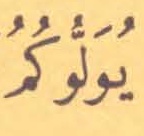 يُوَلُّوكُمُ